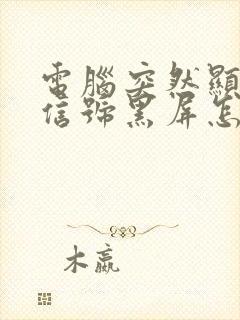 電腦突然顯
信號黑屏怎
木蠃